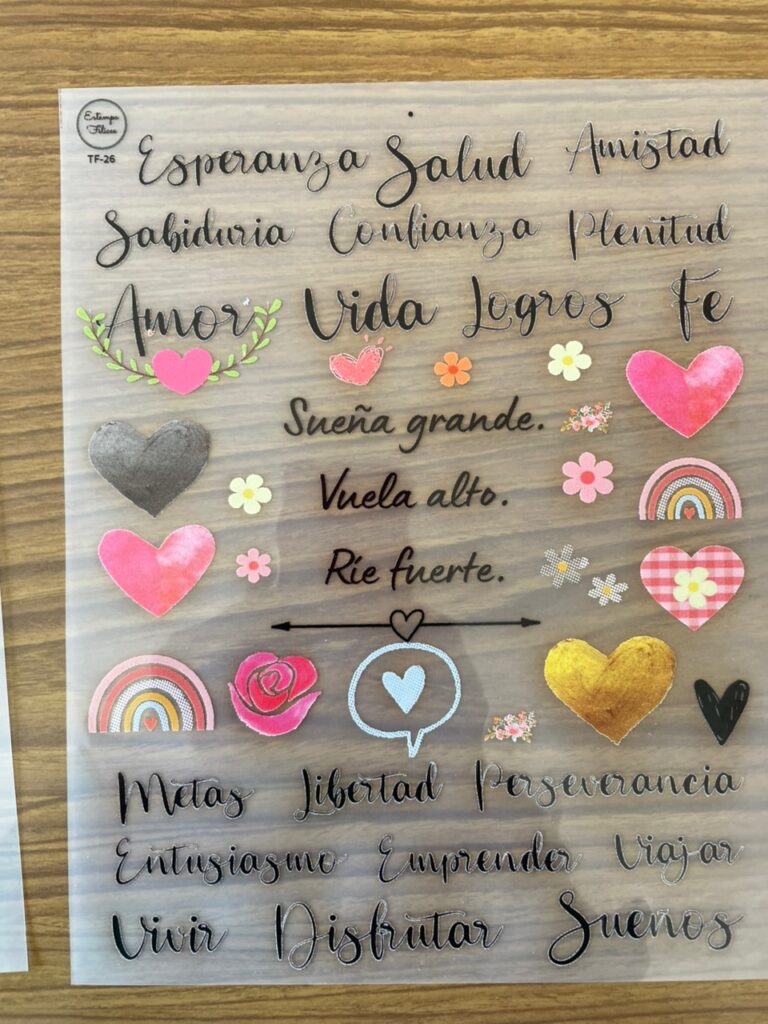 Estampa
Felices
TF-26
Esperanza Salud Amistad
Sabiduria Confianza Plenitud
Amor Vida Logros Fe
Sueña grande.
Vuela alto.
Ríe fuerte.
Metas Libertad Perseverancia
Entusiasmo Emprender Viajar
Vivir Disfrutar Sueños